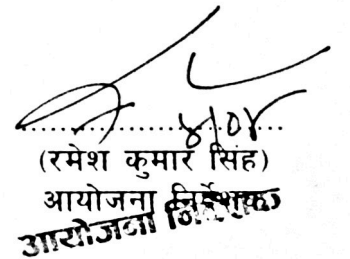 (रमेश कुमार सिंह)
आयोजना निर्देशक
आयोजना निर्देशक